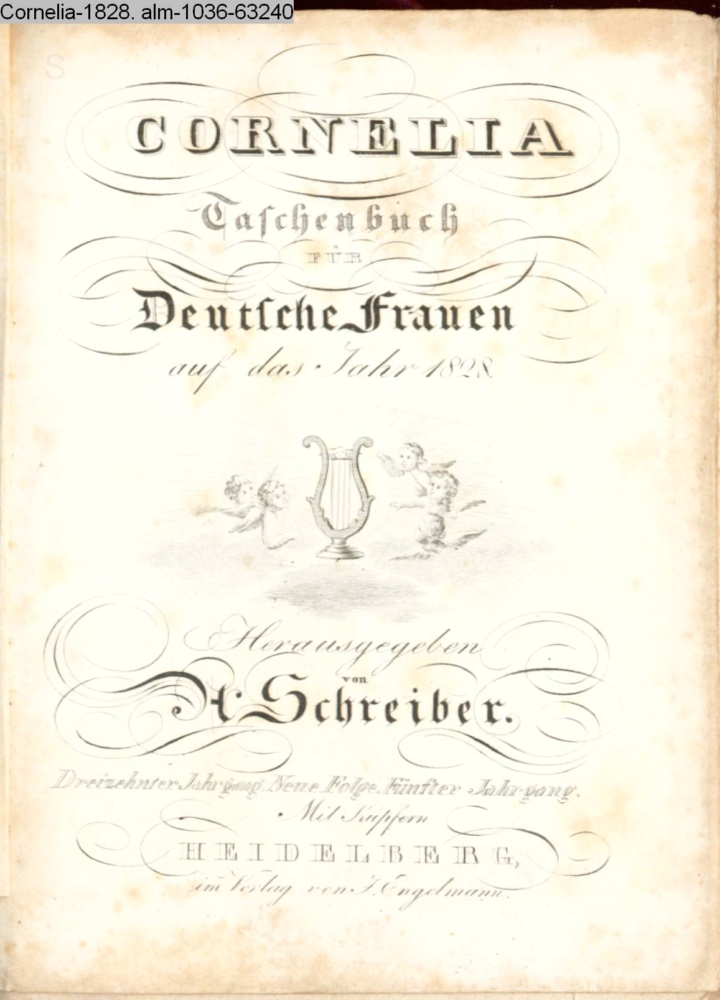 Cornelia-1828. alm-1036-63240
CORNELIA
Taſchenbuch
FÜR
Deutſche Frauen
auf das Jahr 1828.
Herausgegeben
von
A Schreiber.
Dreizehnter Jahrgang. Neue Folge. Fünfter Jahrgang.
Mit Kupfern
HEIDELBERG,
im Verlag von J. Engelmann.